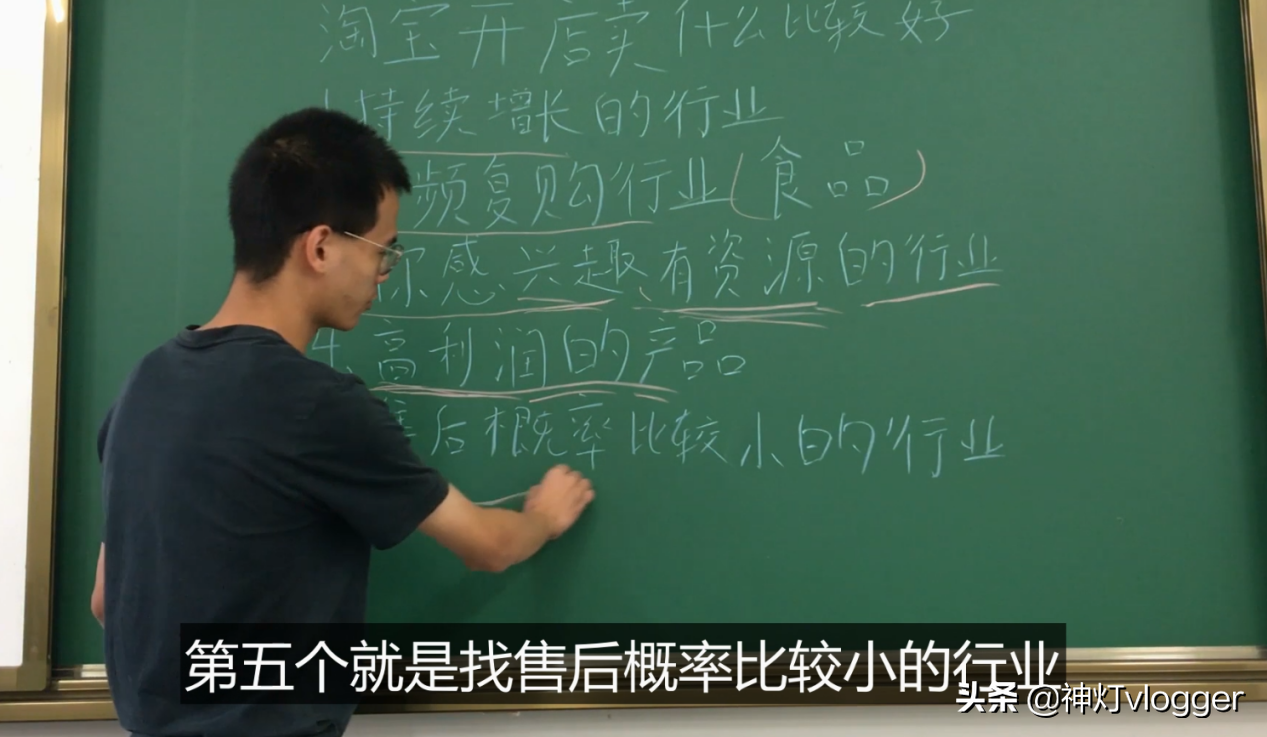 淘宝开店卖什么比较好
持续增长的行业
频复购行业(食品)
你感兴趣、有资源的行业
4、高利润的产品
售后概率比较小的行业
第五个就是找售后概率比较小的行业
头条 @神灯vlogger